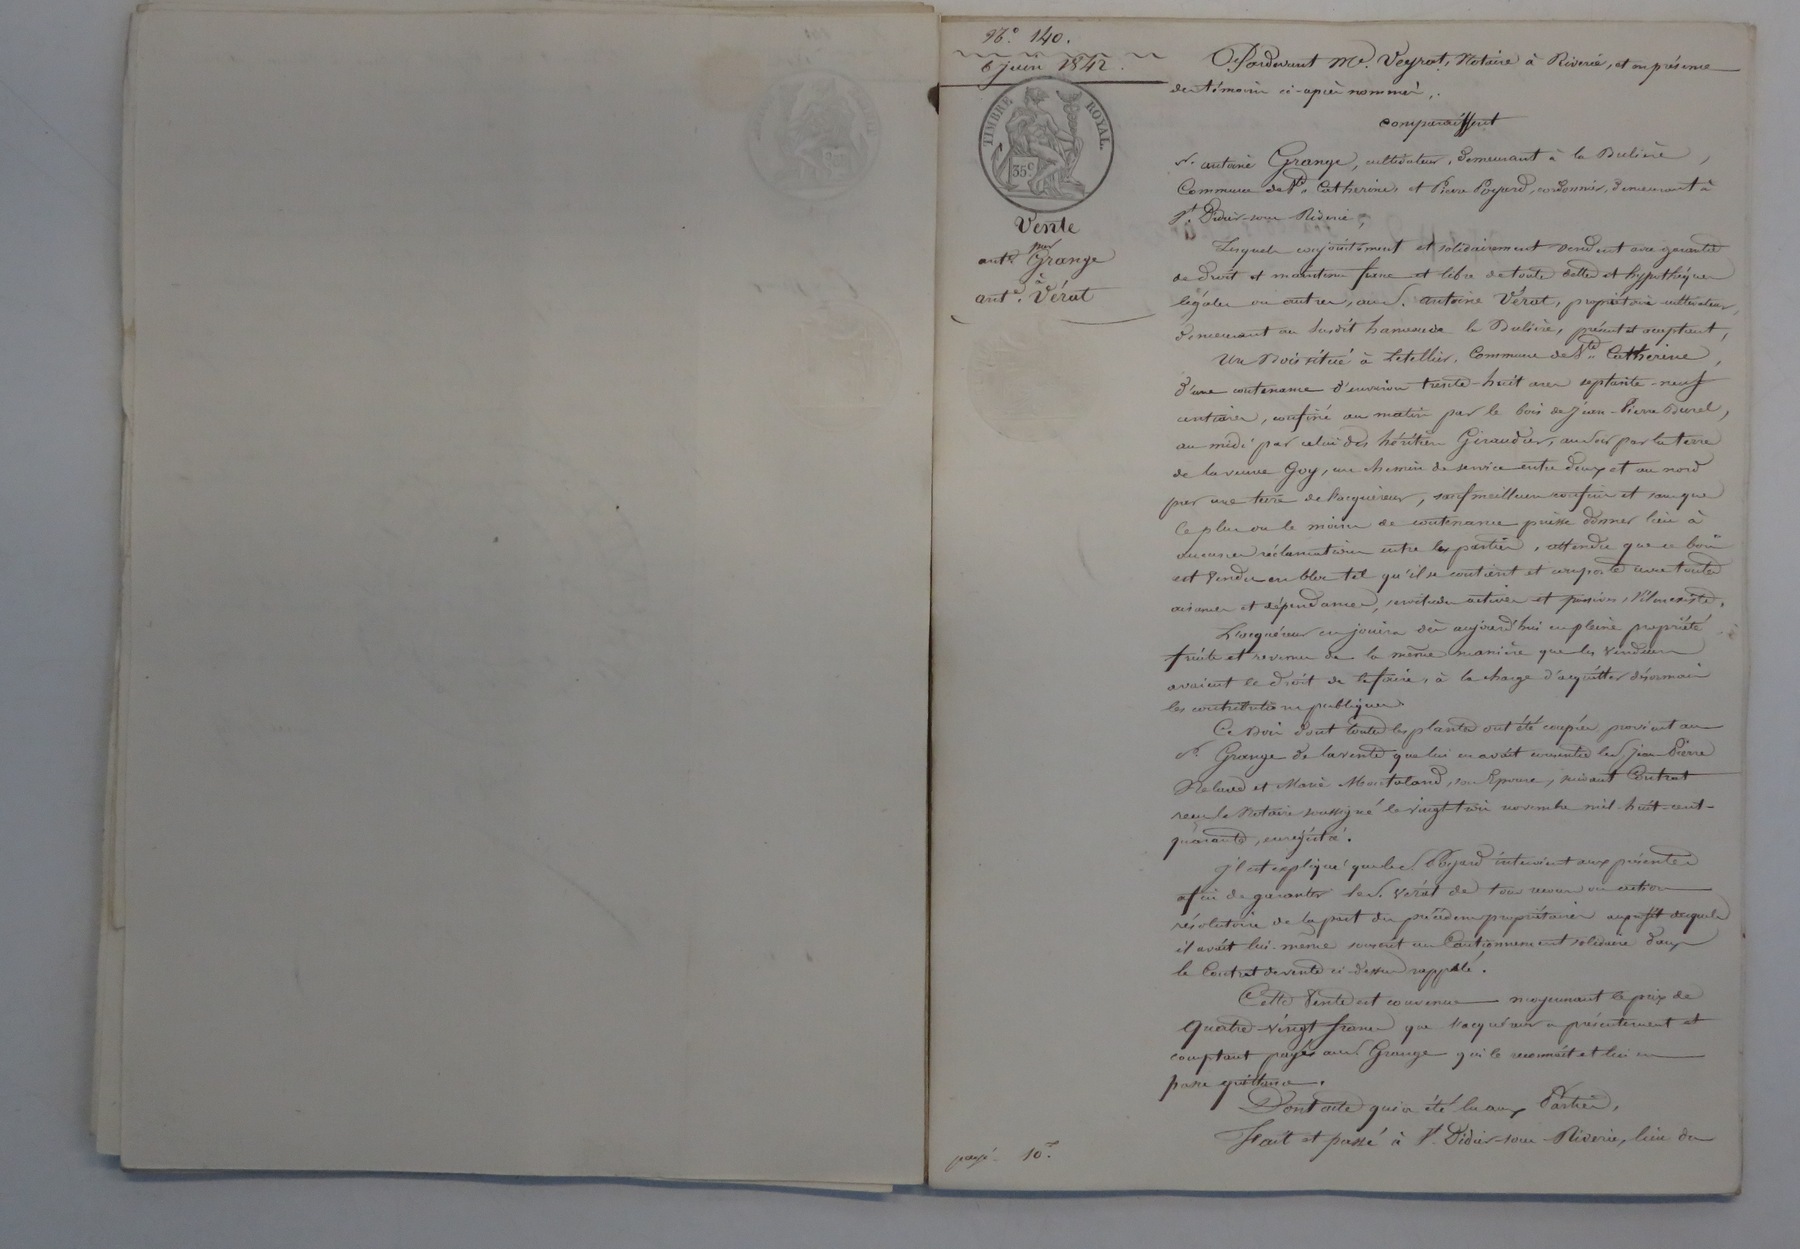 N.° 140.
6 juin 1842.
TIMBRE ROYAL.
35c
Vente
par
ant.e Grange
à
ant.e Vérat
Pardevant Me. Veyrat, Notaire à Riverie, et en présence
des témoins ci-après nommés,
comparaissent
Sr. antoine Grange, cultivateur, demeurant à la Bulière,
Commune de Ste. Catherine, et Pierre Poyard, cordonnier, demeurant à
St. Didier-sous-Riverie,
Lesquels conjointement et solidairement vendent avec garantie
de droit et maintenu franc et libre de toute dette et hypothèques
légales ou autres, au S. antoine Vérat, propriétaire cultivateur,
demeurant au susdit hameau de la Bulière, présent et acceptant,
Un Bois situé à Letellier, Commune de Ste. Catherine,
d'une contenance d'environ trente-huit ares septante-neuf
centiares, confiné au matin par le bois de Jean-Pierre Burel,
au midi par celui des héritiers Giraudier, au soir par la terre
de la veuve Goy, un chemin de service entre deux et au nord
par une terre de l'acquéreur, sauf meilleurs confins et sans que
le plus ou le moins de contenance puisse donner lieu à
aucunes réclamations entre les parties, attendu que ce bois
est vendu en bloc tel qu'il se contient et comporte avec toutes
aisances et dépendances, servitudes actives et passives, s'il en existe.
L'acquéreur en jouira dès aujourd'hui en pleine propriété
fruits et revenus de la même manière que les vendeurs
avaient le droit de le faire, à la charge d'acquitter désormais
les contributions publiques.
Ce Bois dont toutes les plantes ont été coupées provient au
Sr. Grange de la vente que lui en avait consentie le S. Jean-Pierre
et Marie Montaland, son Epouse, suivant Contrat
reçu le Notaire soussigné le vingt-trois novembre mil-huit-cent-
quarante, enregistré.
Il est expliqué que le S. Poyard intervient aux présentes
afin de garantir le S. Vérat de tous recours ou action
résolutoire de la part du précédens propriétaires au profit desquels
il avait lui-même souscrit un Cautionnement solidaire dans
le Contrat de vente ci-dessus rappelé.
Cette Vente est convenue moyennant le prix de
quatre-vingt francs que l'acquéreur a présentement et
comptant payés au S. Grange qui le reconnaît et lui en
passe quittance.
Dont acte qui a été lu aux Parties,
Fait et passé à St. Didier-sous-Riverie, lieu du
payé 10f.